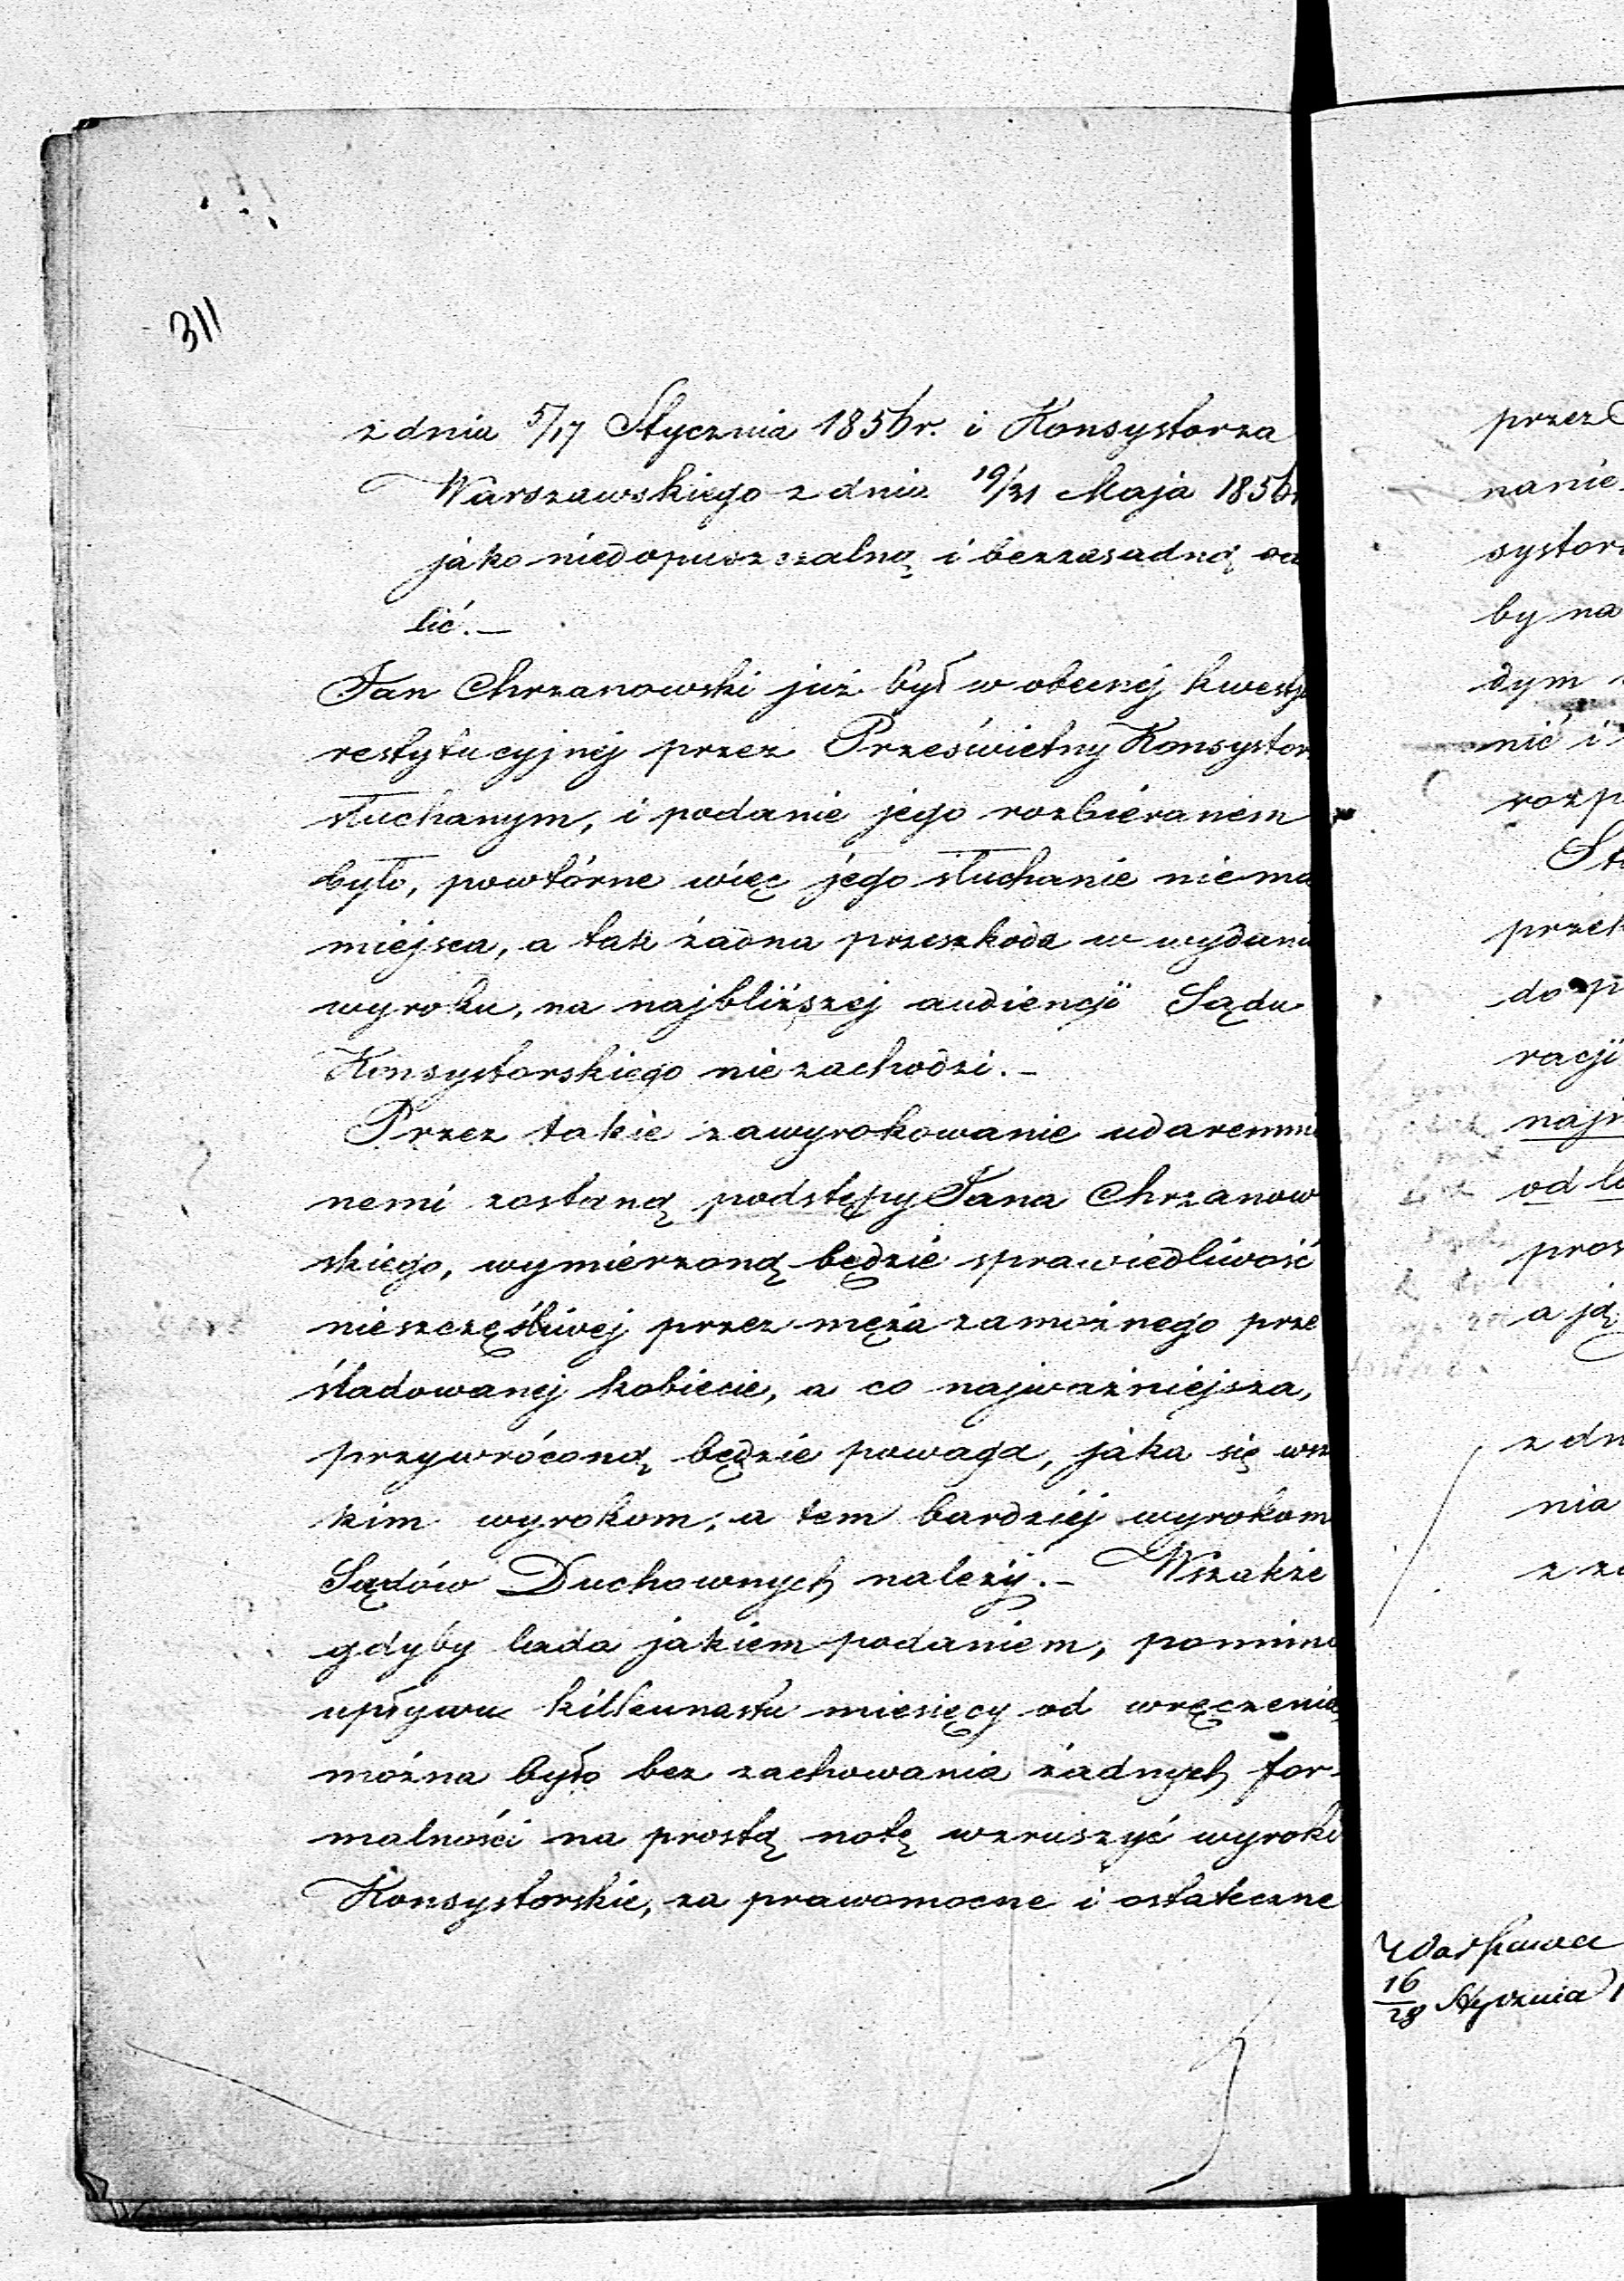 311
z dnia 5/17 Stycznia 1856 r. i Konsystorza
Warszawskiego z dnia 19/31 Maja 1856
jako niedopuszczalną i bezzasadną od
lić. —
Jan Chrzanowski już był w obecnej kwesty
restytucyjnéj przez Prześwietny Konsystor
słuchanym, i podanie jego rozbieranem
było, powtórne więc jego słuchanie niema
miejsca, a tak żadna przeszkoda w wydani
wyroku, na najbliższej audiencji Sądu
Konsystorskiego nie zachodzi. –
Przez takie zawyrokowanie udaremnio
nemi zostaną podstępy Jana Chrzanow
skiego, wymierzoną będzie sprawiedliwość
nieszczęśliwej przez męża zamożnego prze
śladowanej kobiecie, a co najważniejsza,
przywróconą będzie powaga, jaka się wsz
kim wyrokom, a tem bardziéj wyrokom
Sądów Duchownych należy. – Wszakże
gdyby lada jakiem podaniem, pomimo
upływu kilkunastu miesięcy od wręczenia
można było bez zachowania żadnych for-
malności na prostą notę wzruszyć wyroki
Konsystorskie, za prawomocne i ostateczne
przez
nanie
systor
by na
dym
nić i
rozp
St
przek
do p
racji
najm
od
pros
a ją
z dn
nia
z za
Warszawa
16/28 Stycznia 1